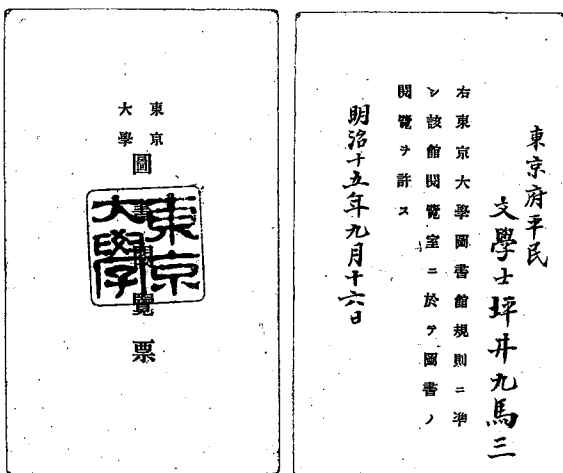 東京府平民
文學士坪井九馬三
右東京大學圖書館規則ニ準
シ該館閲覽室ニ於テ圖書ノ
閲覽ヲ許ス
明治十五年九月十六日
東京
大學
圖書閲覽票
東京
大學